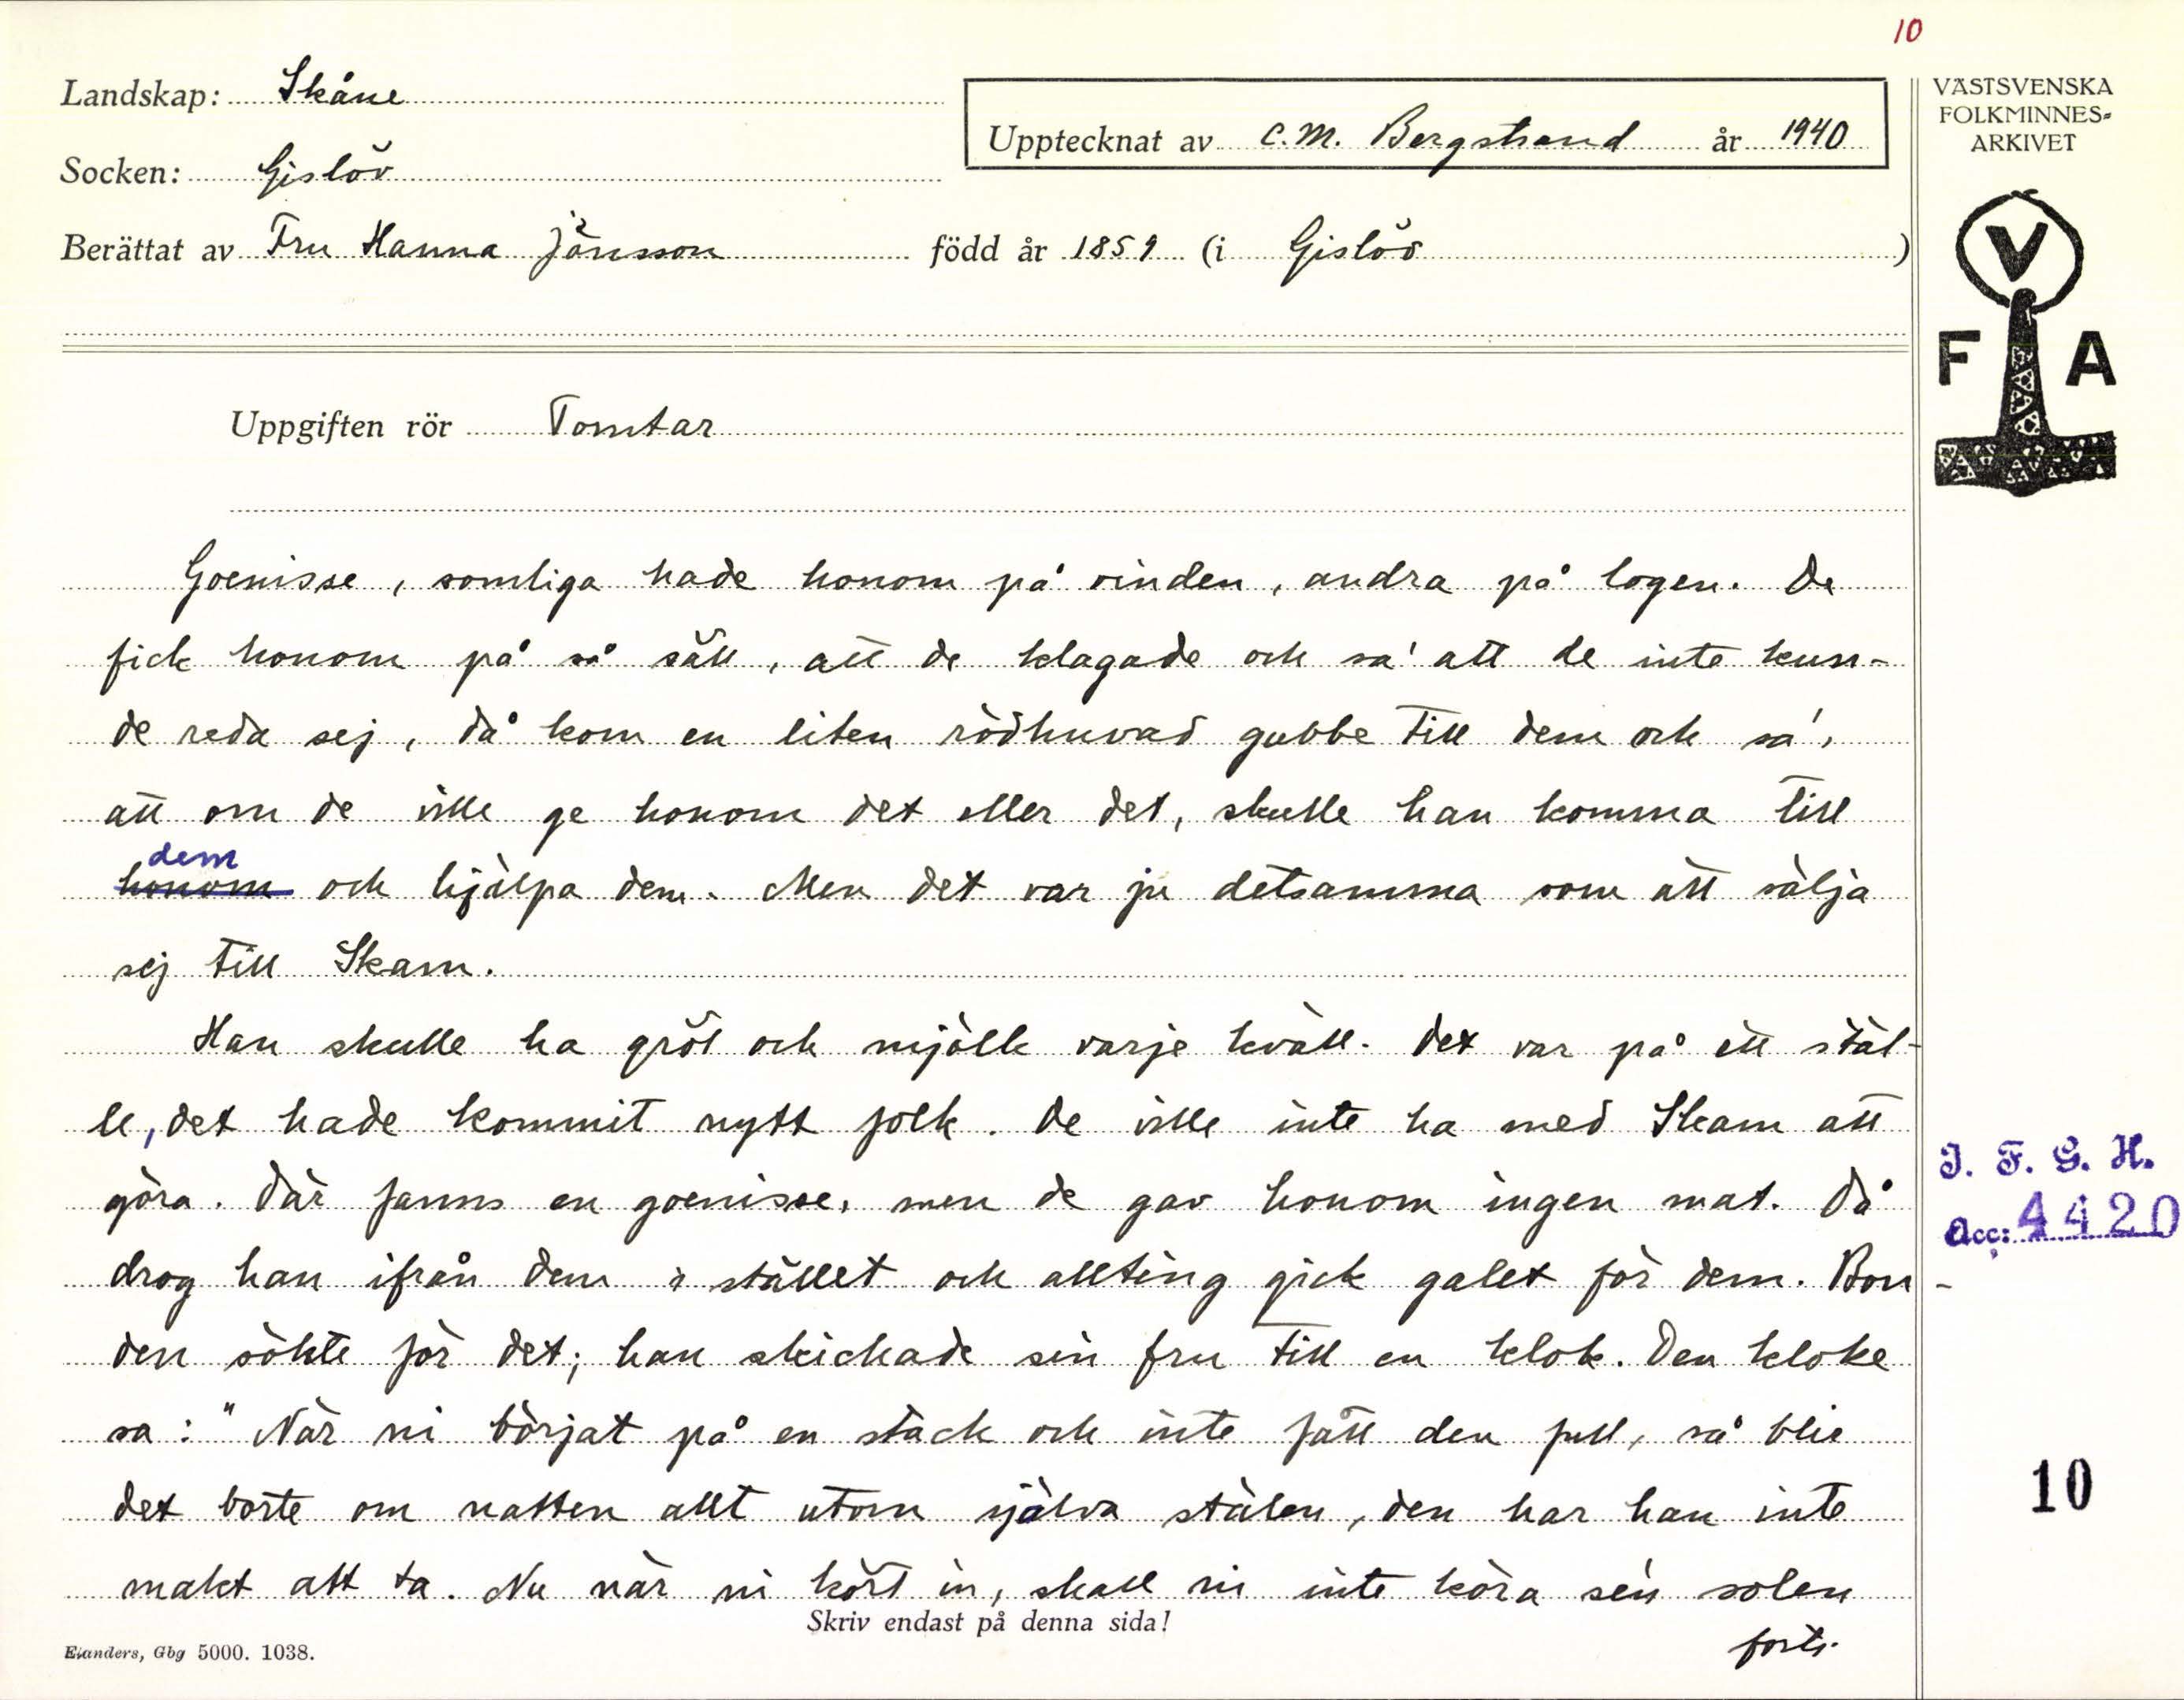 10
Landskap: Skåne
Upptecknat av C.M. Bergstrand år 1940
VÄSTSVENSKA
FOLKMINNES=
ARKIVET
Socken: Gislöv
Berättat av Fru Hanna Jönsson född år 1859 (i Gislöv )
V
F A
Uppgiften rör Tomtar
Goenisse, somliga hade honom på vinden, andra på logen. De
fick honom på så sätt, att de klagade och sa' att de inte kun-
de reda sej, då kom en liten rödhuvad gubbe till dem och sa',
att om de ville ge honom det eller det, skulle han komma till
dem
honom och hjälpa dem. Men det var ju detsamma som att sälja
sej till Skam.
Han skulle ha gröt och mjölk varje kväll. Det var på ett stäl-
le, det hade kommit nytt folk. De ville inte ha med Skam att
göra. Där fanns en goenisse, men de gav honom ingen mat. Då
drog han ifrån dem i stället och allting gick galet för dem. Bon-
den sökte för det; han skickade sin fru till en klok. Den kloke
sa: "När ni börjat på en stack och inte fått den full, så blir
det borte om natten allt utom själva stålen, den har han inte
makt att ta. Nu när ni kört in, skall ni inte köra sén solen
Skriv endast på denna sida!
forts.
Elanders, Gbg 5000. 1038.
I. F. G. H.
Acc: 4420
10